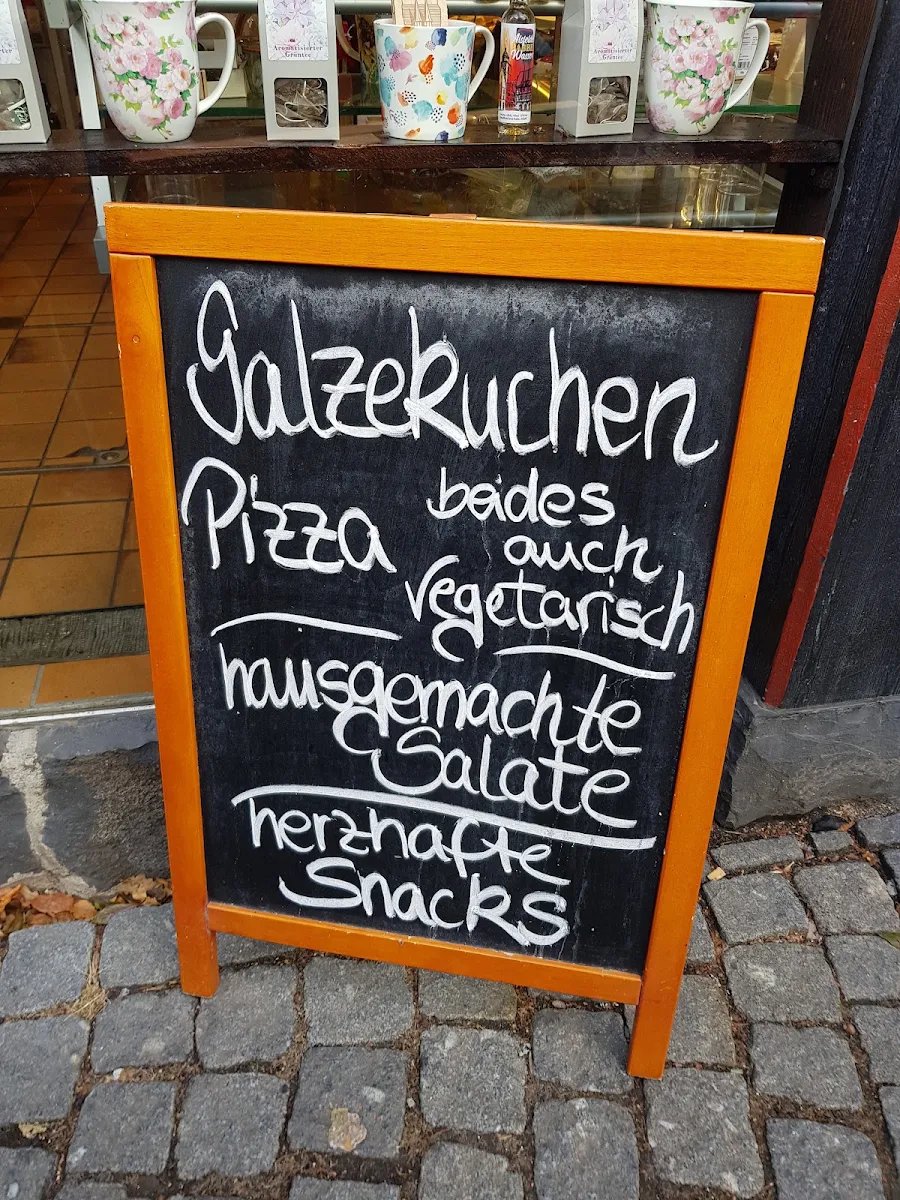 Aromatisierter
Grüntee
Aromatisierter
Grüntee
Salzekuchen
Pizza beides
auch
vegetarisch
hausgemachte
Salate
herzhafte
Snacks